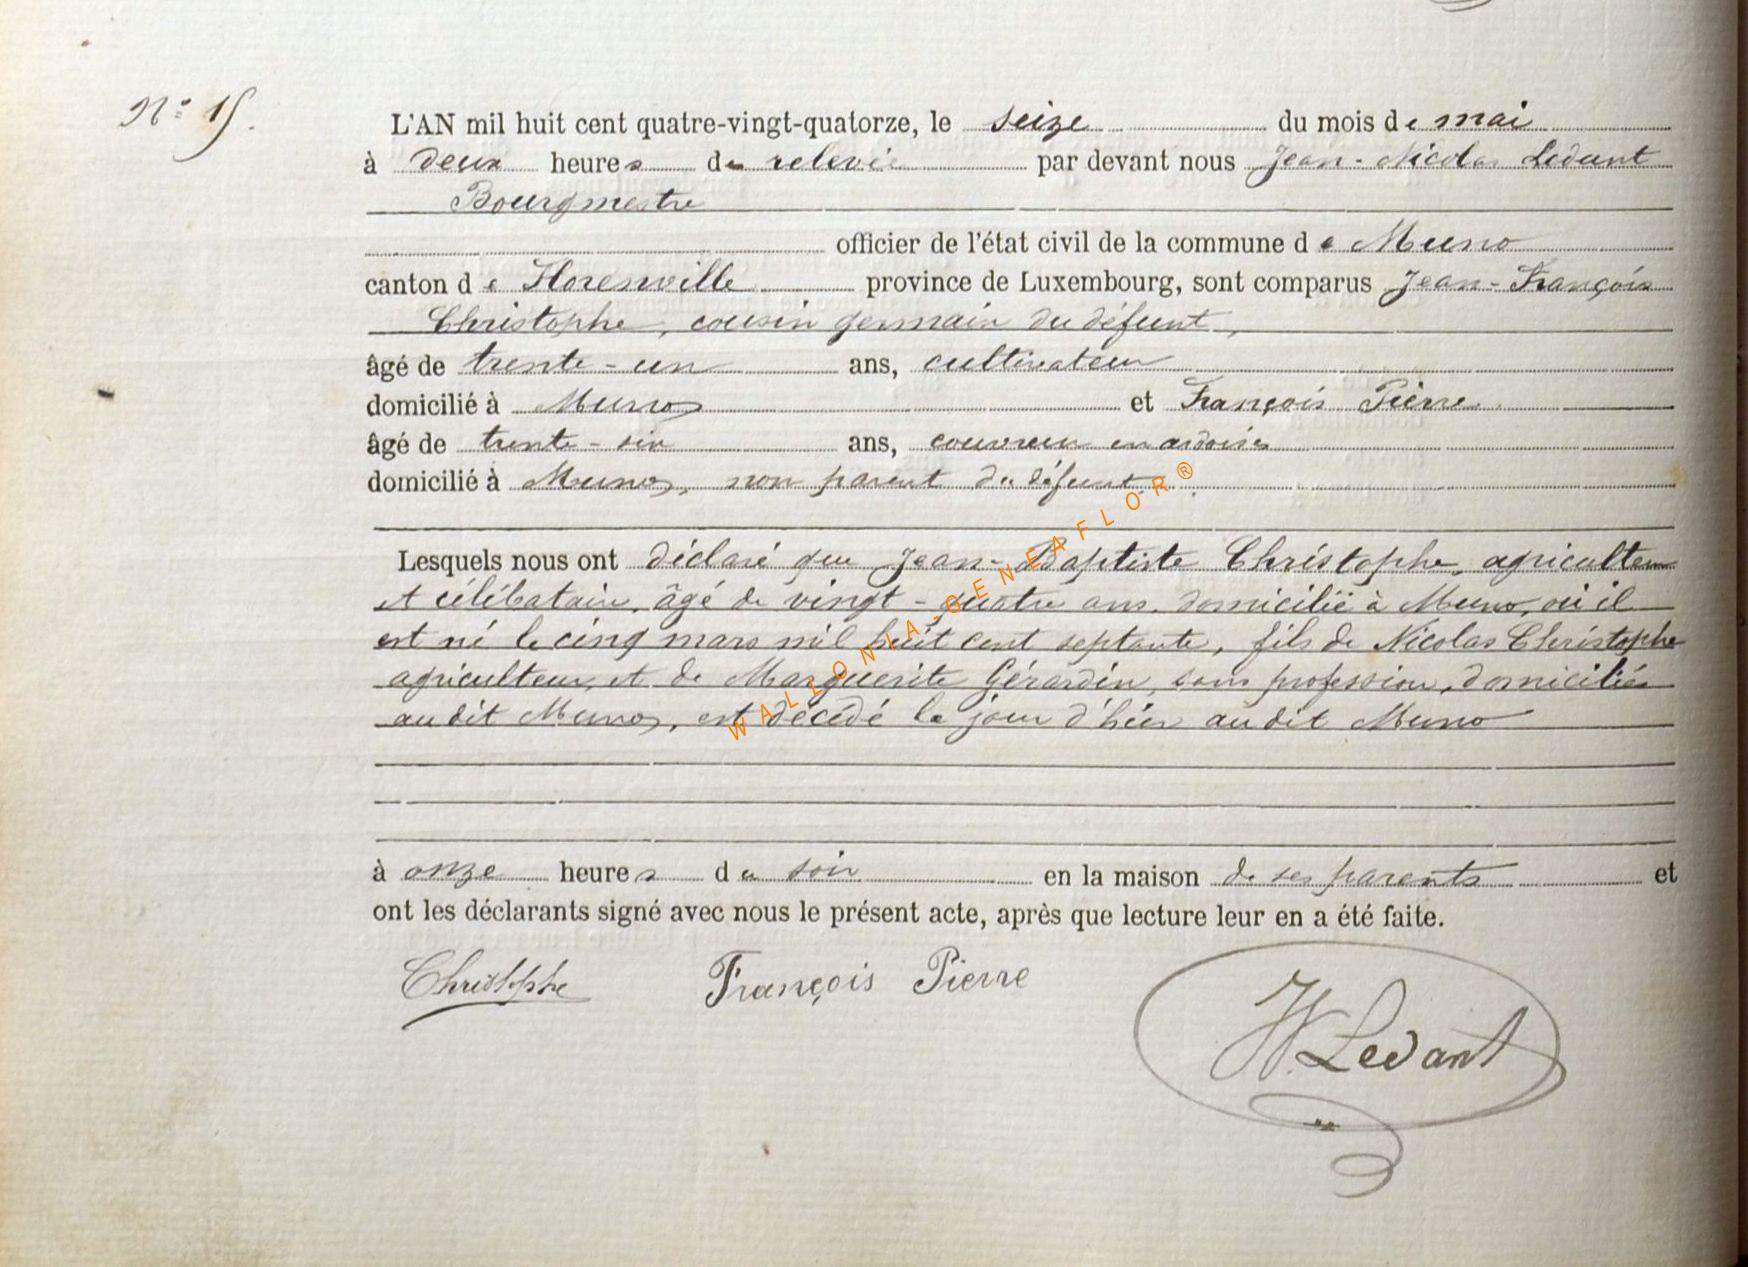 N° 15.
L'AN mil huit cent quatre-vingt-quatorze, le seize du mois de mai
à deux heures de relevée par devant nous Jean-Nicolas Ledant
Bourgmestre
officier de l'état civil de la commune de Muno
canton de Florenville province de Luxembourg, sont comparus Jean-François
Christophe, cousin germain du défunt,
âgé de trente-un ans, cultivateur
domicilié à Muno et François Pierre
âgé de trente-six ans, couvreur en ardoises
domicilié à Muno, non parent du défunt.
Lesquels nous ont déclaré que Jean-Baptiste Christophe, agriculteur
et célibataire, âgé de vingt-quatre ans, domicilié à Muno, où il
est né le cinq mars mil huit cent septante, fils de Nicolas Christophe
agriculteur, et de Marguerite Gérardin, sans profession, domiciliés
au dit Muno, est décédé le jour d'hier au dit Muno
à onze heures du soir en la maison de ses parents et
ont les déclarants signé avec nous le présent acte, après que lecture leur en a été faite.
Christophe François Pierre
Ledant
WALLONIA-GENEAFLOR®